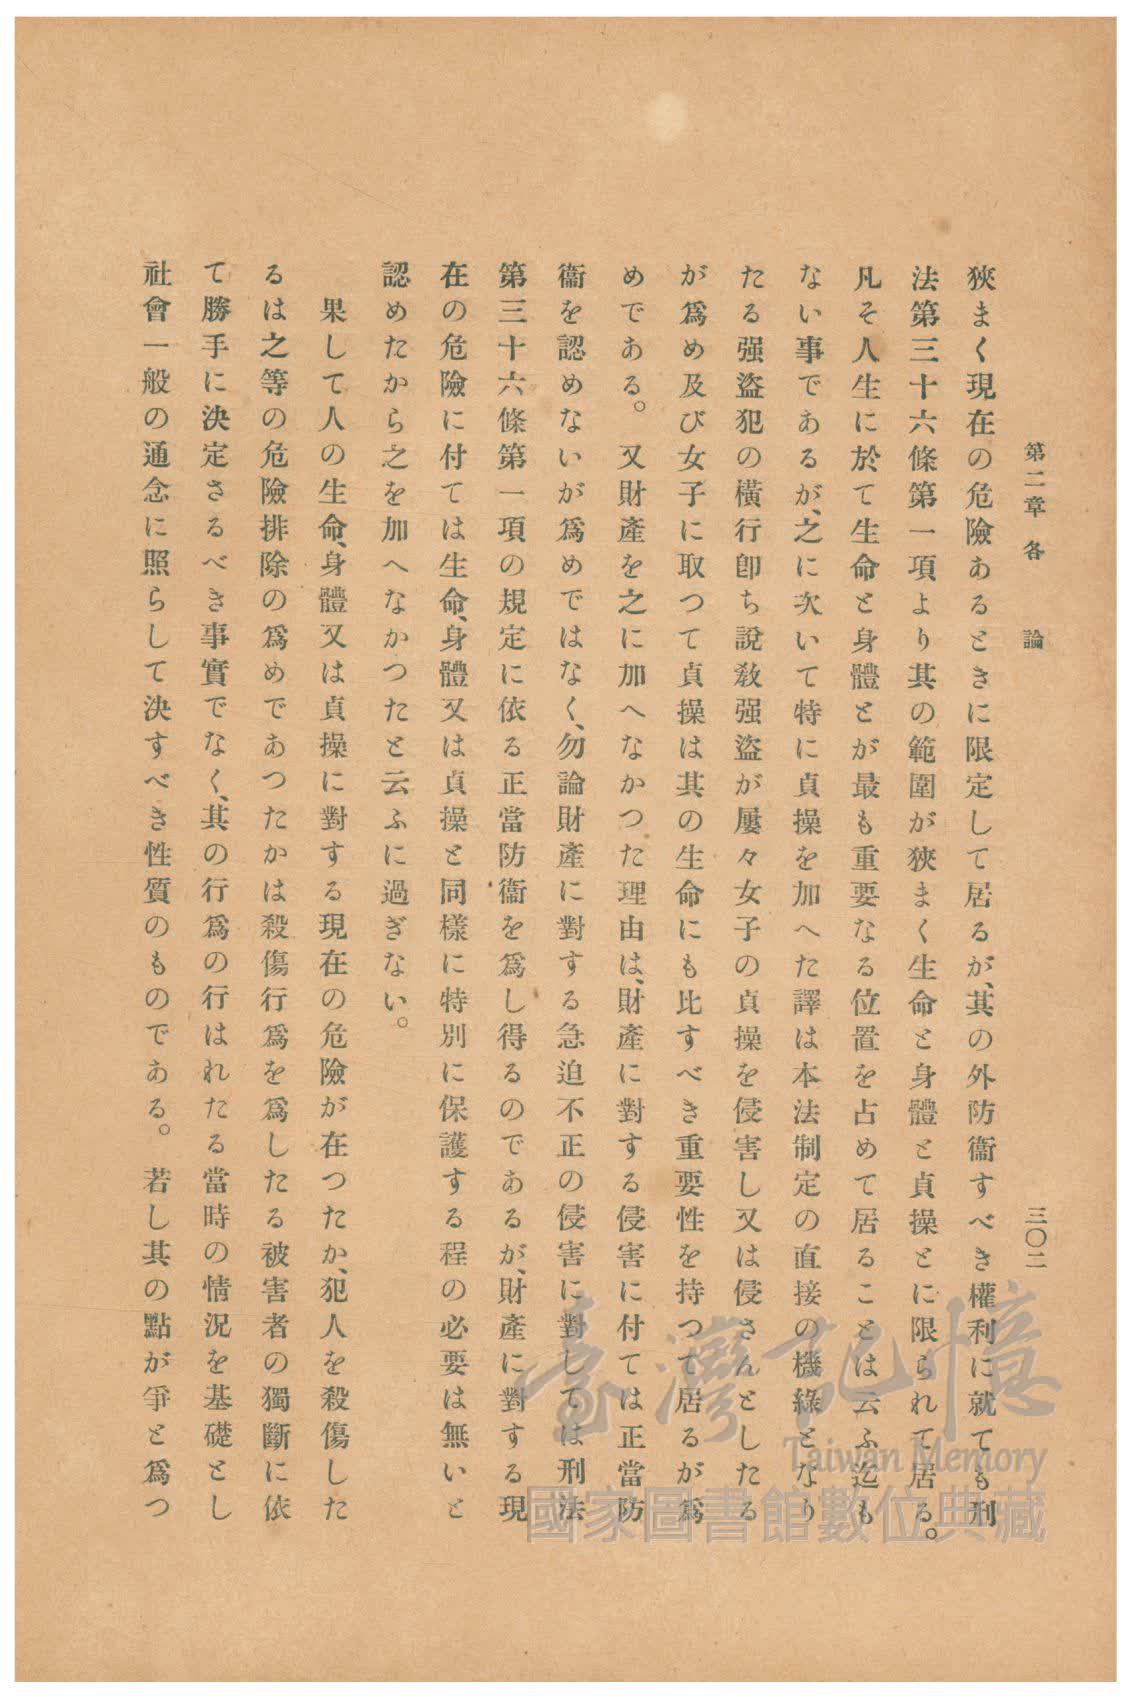 第二章 各論 三〇二
狹まく現在の危險あるときに限定して居るが、其の外防衞すべき權利に就ても刑
法第三十六條第一項より其の範圍が狹まく生命と身體と貞操とに限られて居る。
凡そ人生に於て生命と身體とが最も重要なる位置を占めて居ることは云ふ迄も
ない事であるが、之に次いて特に貞操を加へた譯は本法制定の直接の機緣となり
たる强盜犯の橫行卽ち說敎强盜が屢々女子の貞操を侵害し又は侵さんとしたる
が爲め及び女子に取つて貞操は其の生命にも比すべき重要性を持つて居るが爲
めである。又財產を之に加へなかつた理由は、財產に對する侵害に付ては正當防
衞を認めないが爲めではなく、勿論財產に對する急迫不正の侵害に對しては刑法
第三十六條第一項の規定に依る正當防衞を爲し得るのであるが、財產に對する現
在の危險に付ては生命、身體又は貞操と同樣に特別に保護する程の必要は無いと
認めたから之を加へなかつたと云ふに過ぎない。
果して人の生命、身體又は貞操に對する現在の危險が在つたか、犯人を殺傷した
るは之等の危險排除の爲めであつたかは殺傷行爲を爲したる被害者の獨斷に依
て勝手に決定さるべき事實でなく、其の行爲の行はれたる當時の情況を基礎とし
社會一般の通念に照らして決すべき性質のものである。若し其の點が爭と爲つ
臺灣記憶
Taiwan Memory
國家圖書館數位典藏